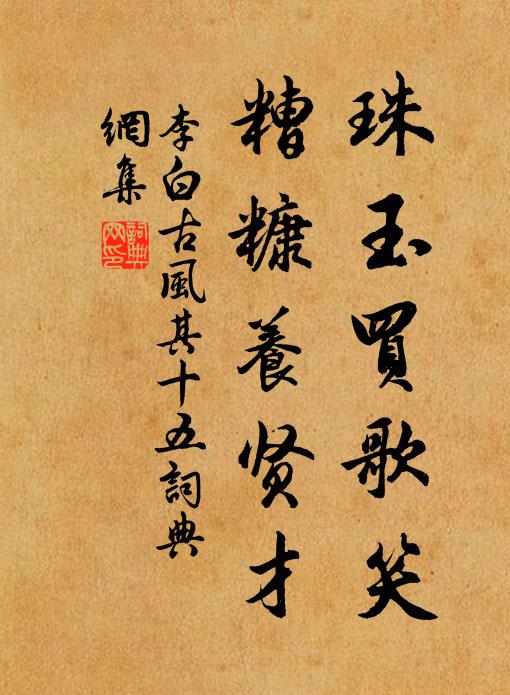 珠玉買歌笑
糟糠養贤才
李白古風其十五詞典
網集
詞典
网印